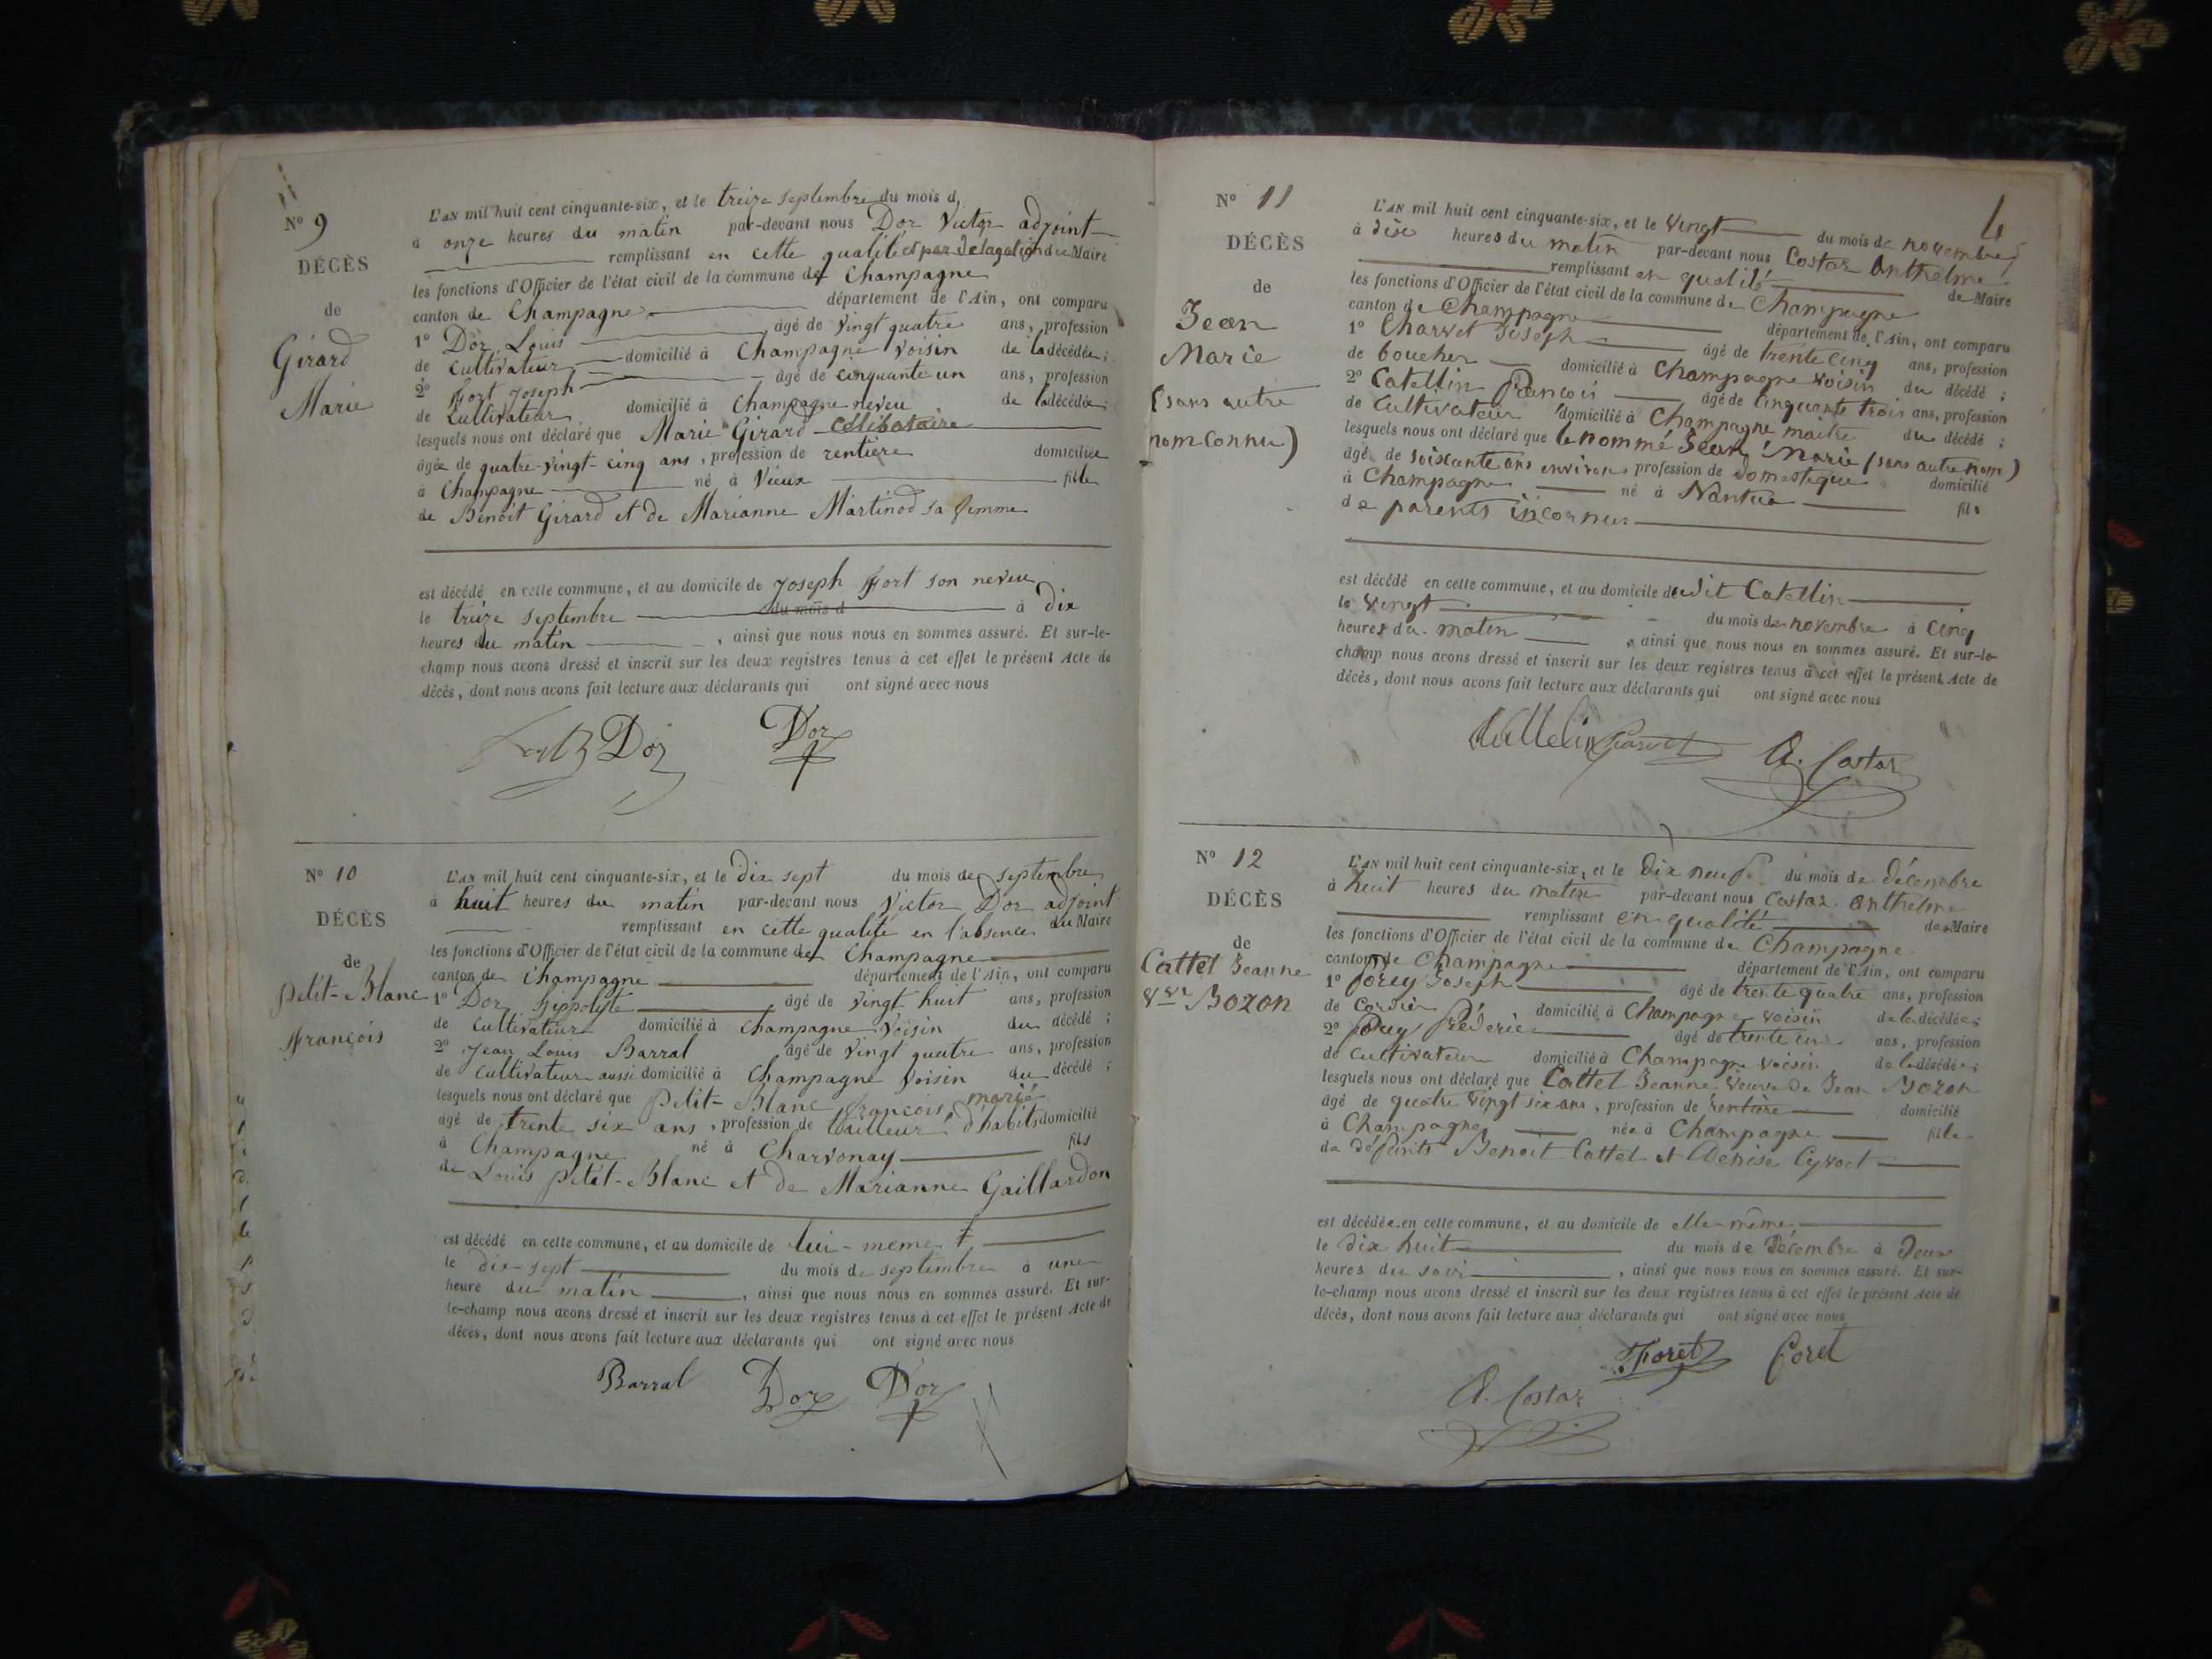 Nº 9
DÉCÈS
de
Girard
Marie
L'AN mil huit cent cinquante-six, et le treize septembre du mois d
à onze heures du matin par-devant nous Dor Victor adjoint
remplissant en cette qualité et par délégation du Maire
les fonctions d'Officier de l'état civil de la commune de Champagne
canton de Champagne département de l'Ain, ont comparu
1º Dor Louis âgé de vingt quatre ans, profession
de cultivateur domicilié à Champagne voisin de la décédée;
2º Fort Joseph âgé de cinquante-un ans, profession
de cultivateur domicilié à Champagne neveu de la décédée;
lesquels nous ont déclaré que Marie Girard célibataire
âgée de quatre-vingt-cinq ans, profession de rentière domiciliée
à Champagne né à Vieux fille
de Benoît Girard et de Marianne Martinod sa femme
est décédé en cette commune, et au domicile de Joseph Fort son neveu
le treize septembre du mois d à dix
heures du matin, ainsi que nous nous en sommes assuré. Et sur-le-
champ nous avons dressé et inscrit sur les deux registres tenus à cet effet le présent Acte de
décès, dont nous avons fait lecture aux déclarants qui ont signé avec nous
Dor Dor
Nº 10
DÉCÈS
de
Petit-Blanc
François
L'AN mil huit cent cinquante-six, et le dix sept du mois de septembre
à huit heures du matin par-devant nous Victor Dor adjoint
remplissant en cette qualité en l'absence du Maire
les fonctions d'Officier de l'état civil de la commune de Champagne
canton de Champagne département de l'Ain, ont comparu
1º Dor Hippolyte âgé de vingt huit ans, profession
de cultivateur domicilié à Champagne voisin du décédé;
2º Jean Louis Barral âgé de vingt quatre ans, profession
de cultivateur aussi domicilié à Champagne voisin du décédé;
lesquels nous ont déclaré que Petit-Blanc François, marié
âgé de trente six ans, profession de tailleur d'habits domicilié
à Champagne né à Charvonay fils
de Louis Petit-Blanc et de Marianne Gaillardon
est décédé en cette commune, et au domicile de lui-meme
le dix-sept du mois de septembre à une
heure du matin, ainsi que nous nous en sommes assuré. Et sur-
le-champ nous avons dressé et inscrit sur les deux registres tenus à cet effet le présent Acte de
décès, dont nous avons fait lecture aux déclarants qui ont signé avec nous
Barral Dor Dor
4
Nº 11
DÉCÈS
de
Jean
Marie
(sans autre
nom connu)
L'AN mil huit cent cinquante-six, et le vingt du mois de novembre
à dix heures du matin par-devant nous Costaz Anthelme
remplissant en qualité de Maire
les fonctions d'Officier de l'état civil de la commune de Champagne
canton de Champagne département de l'Ain, ont comparu
1º Charvet Joseph âgé de trente cinq ans, profession
de boucher domicilié à Champagne voisin du décédé;
2º Catellin François âgé de cinquante trois ans, profession
de cultivateur domicilié à Champagne maitre du décédé;
lesquels nous ont déclaré que le nommé Jean Marie (sans autre nom)
âgé de soixante ans environ, profession de domestique domicilié
à Champagne né à Nantua fils
de parents inconnus
est décédé en cette commune, et au domicile dudit Catellin
le vingt du mois de novembre à cinq
heures du matin, ainsi que nous nous en sommes assuré. Et sur-le-
champ nous avons dressé et inscrit sur les deux registres tenus à cet effet le présent Acte de
décès, dont nous avons fait lecture aux déclarants qui ont signé avec nous
Catellin Charvet A. Costaz
Nº 12
DÉCÈS
de
Cattel Jeanne
vve Bozon
L'AN mil huit cent cinquante-six, et le dix neuf du mois de décembre
à huit heures du matin par-devant nous Costaz Anthelme
remplissant en qualité de Maire
les fonctions d'Officier de l'état civil de la commune de Champagne
canton de Champagne département de l'Ain, ont comparu
1º Forey Joseph âgé de trente quatre ans, profession
de domicilié à Champagne voisin de la décédée;
2º Forey Fréderic âgé de trente un ans, profession
de cultivateur domicilié à Champagne voisin de la décédée;
lesquels nous ont déclaré que Cattel Jeanne veuve de Jean Bozon
âgé de quatre vingt six ans, profession de rentière domicilié
à Champagne née à Champagne fille
de défunts Benoit Cattel et Denise Cyvoct
est décédée en cette commune, et au domicile de elle-même
le dix huit du mois de Décembre à deux
heures du soir, ainsi que nous nous en sommes assuré. Et sur-
le-champ nous avons dressé et inscrit sur les deux registres tenus à cet effet le présent Acte de
décès, dont nous avons fait lecture aux déclarants qui ont signé avec nous
Foret Foret
A. Costaz